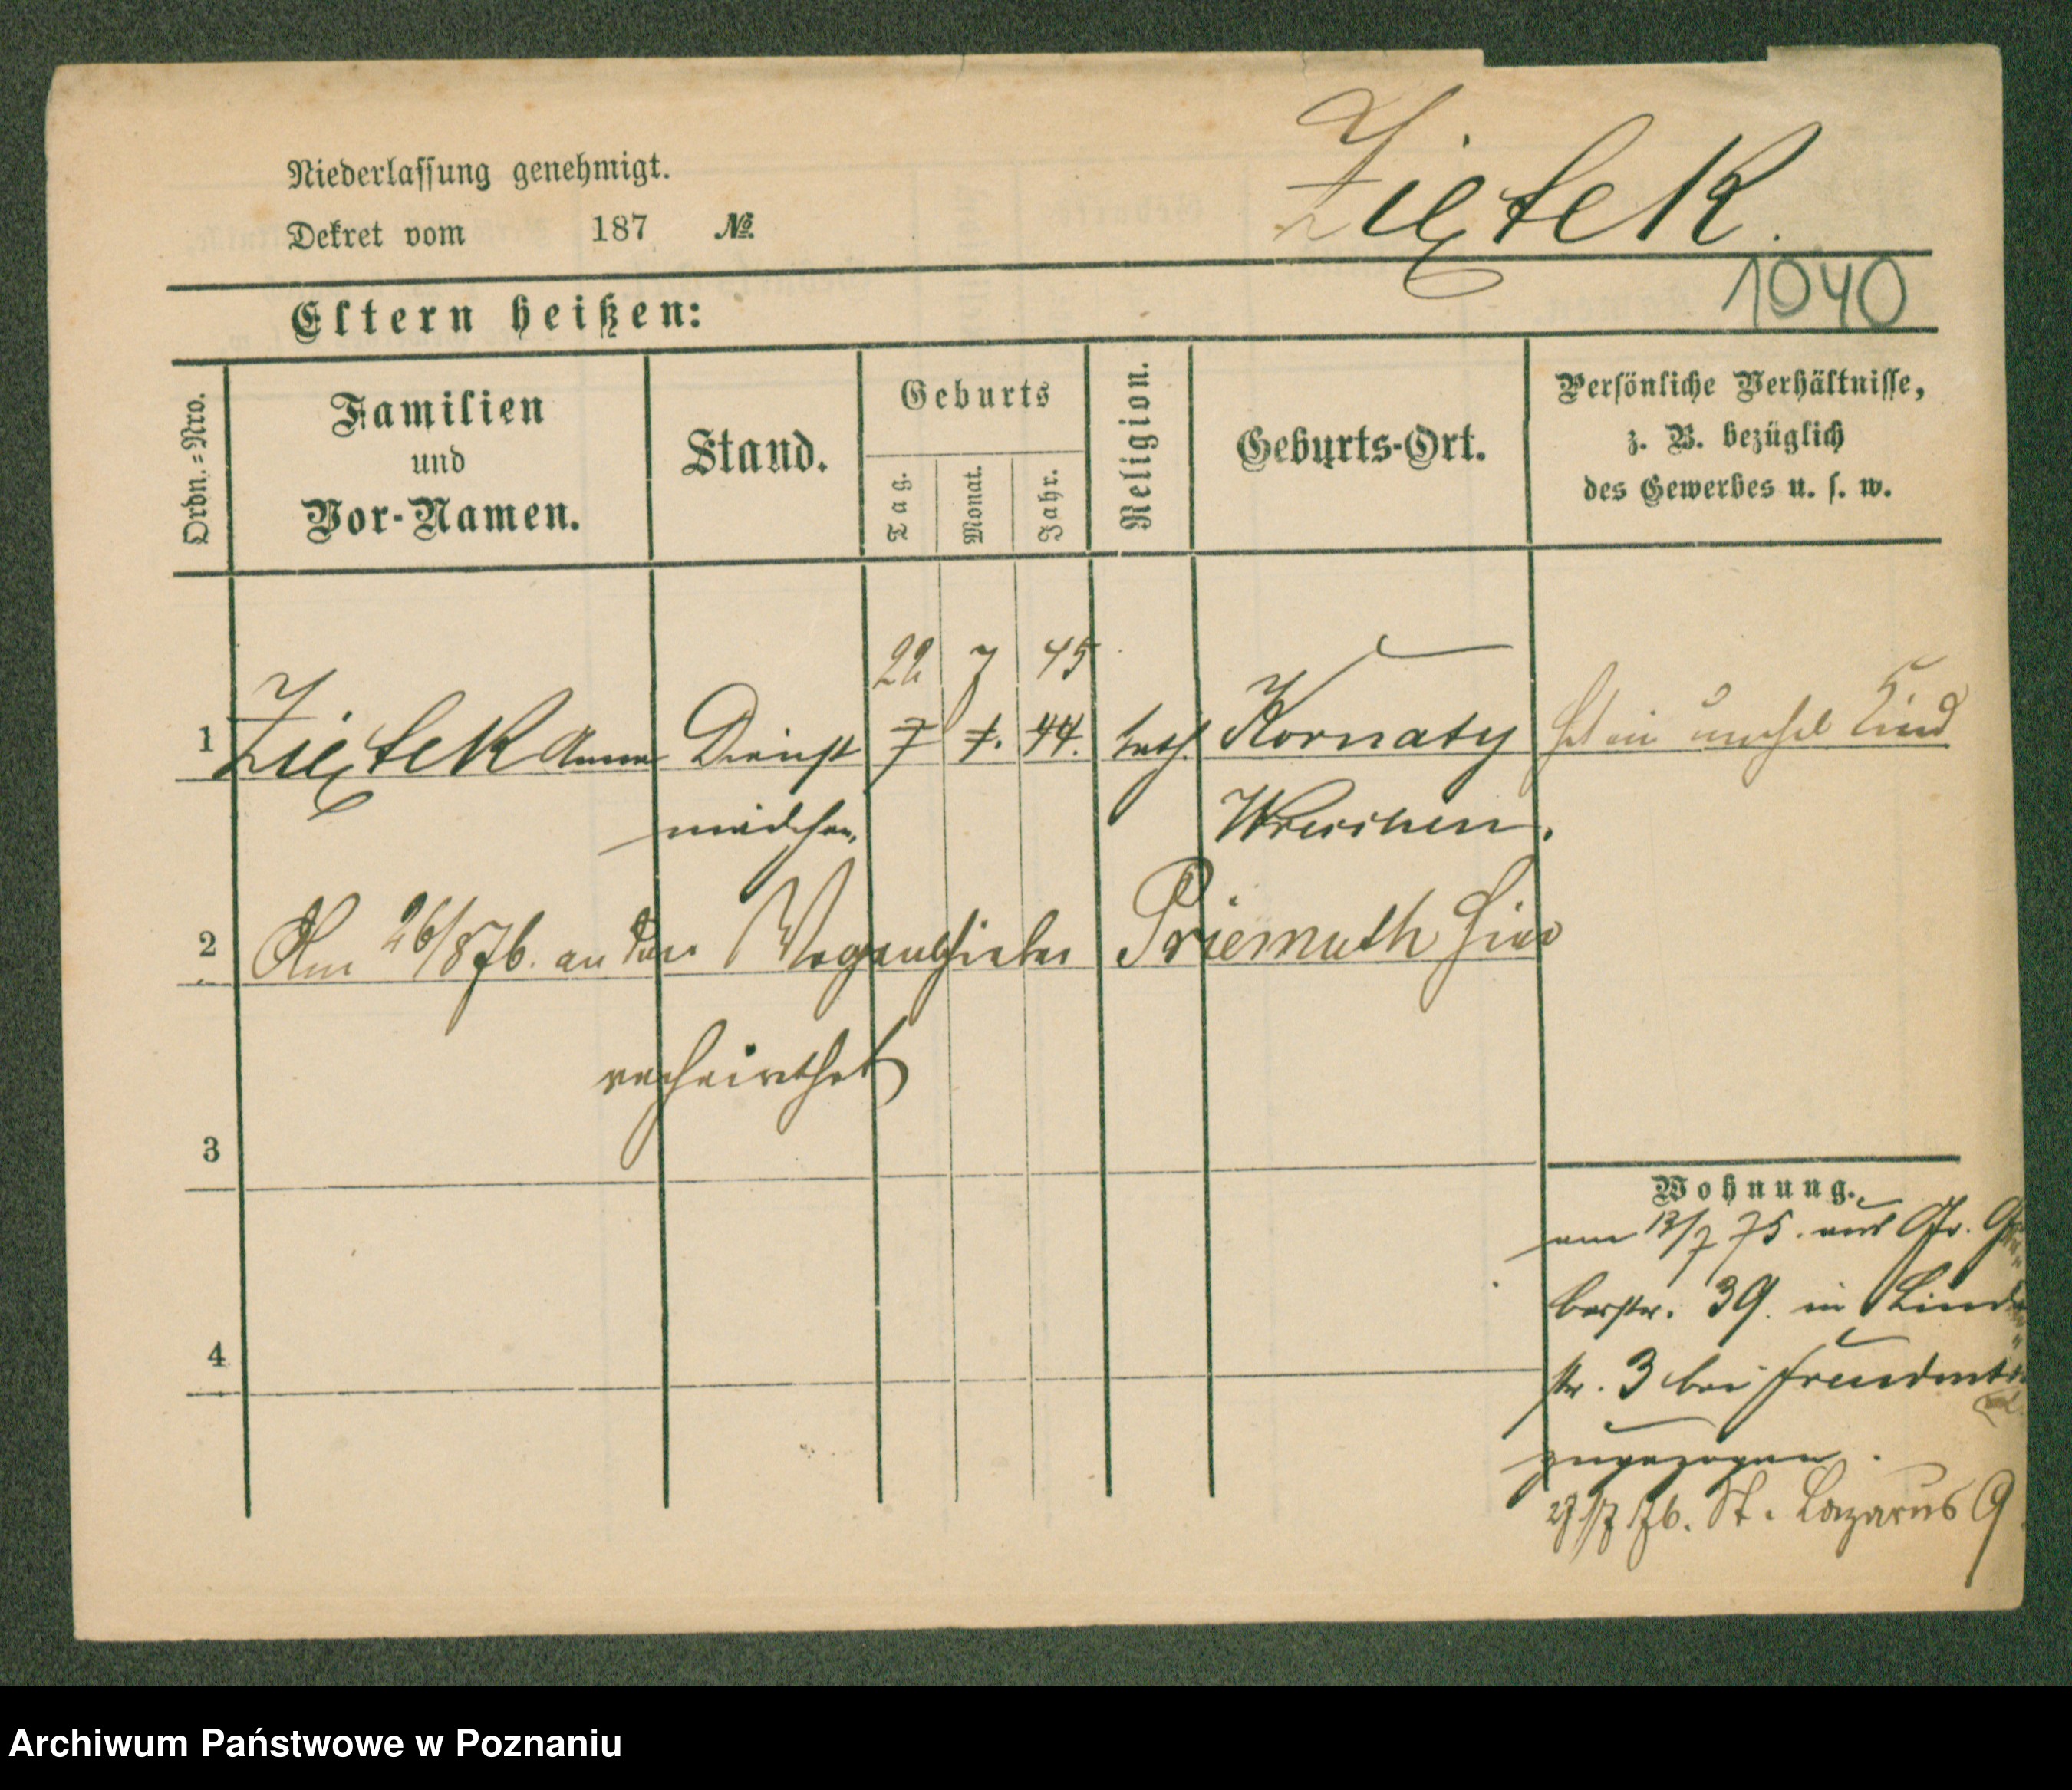 Niederlassung genehmigt.
Dekret vom 187 №
Ziętek.
1040
Eltern heißen:
Ordn.=Nro.
Familien
und
Vor-Namen.
Stand.
Geburts
Tag.
Monat.
Jahr.
Religion.
Geburts-Ort.
Persönliche Verhältnisse,
z. B. bezüglich
des Gewerbes u. s. w.
22 7 45
1 Ziętek Anna Dienst 7 7. 44. kath. Kornaty hat ein unehel Kind
mädchen, Wreschen.
2 Am 26/8 76. an den Priemuth hier
verheirathet
3
4
Wohnung.
am 13/7 75. aus Gr. Ger
berstr. 39. in Linden
str. 3 bei
zugezogen.
27/7 76. St. Lazarus 9
Archiwum Państwowe w Poznaniu